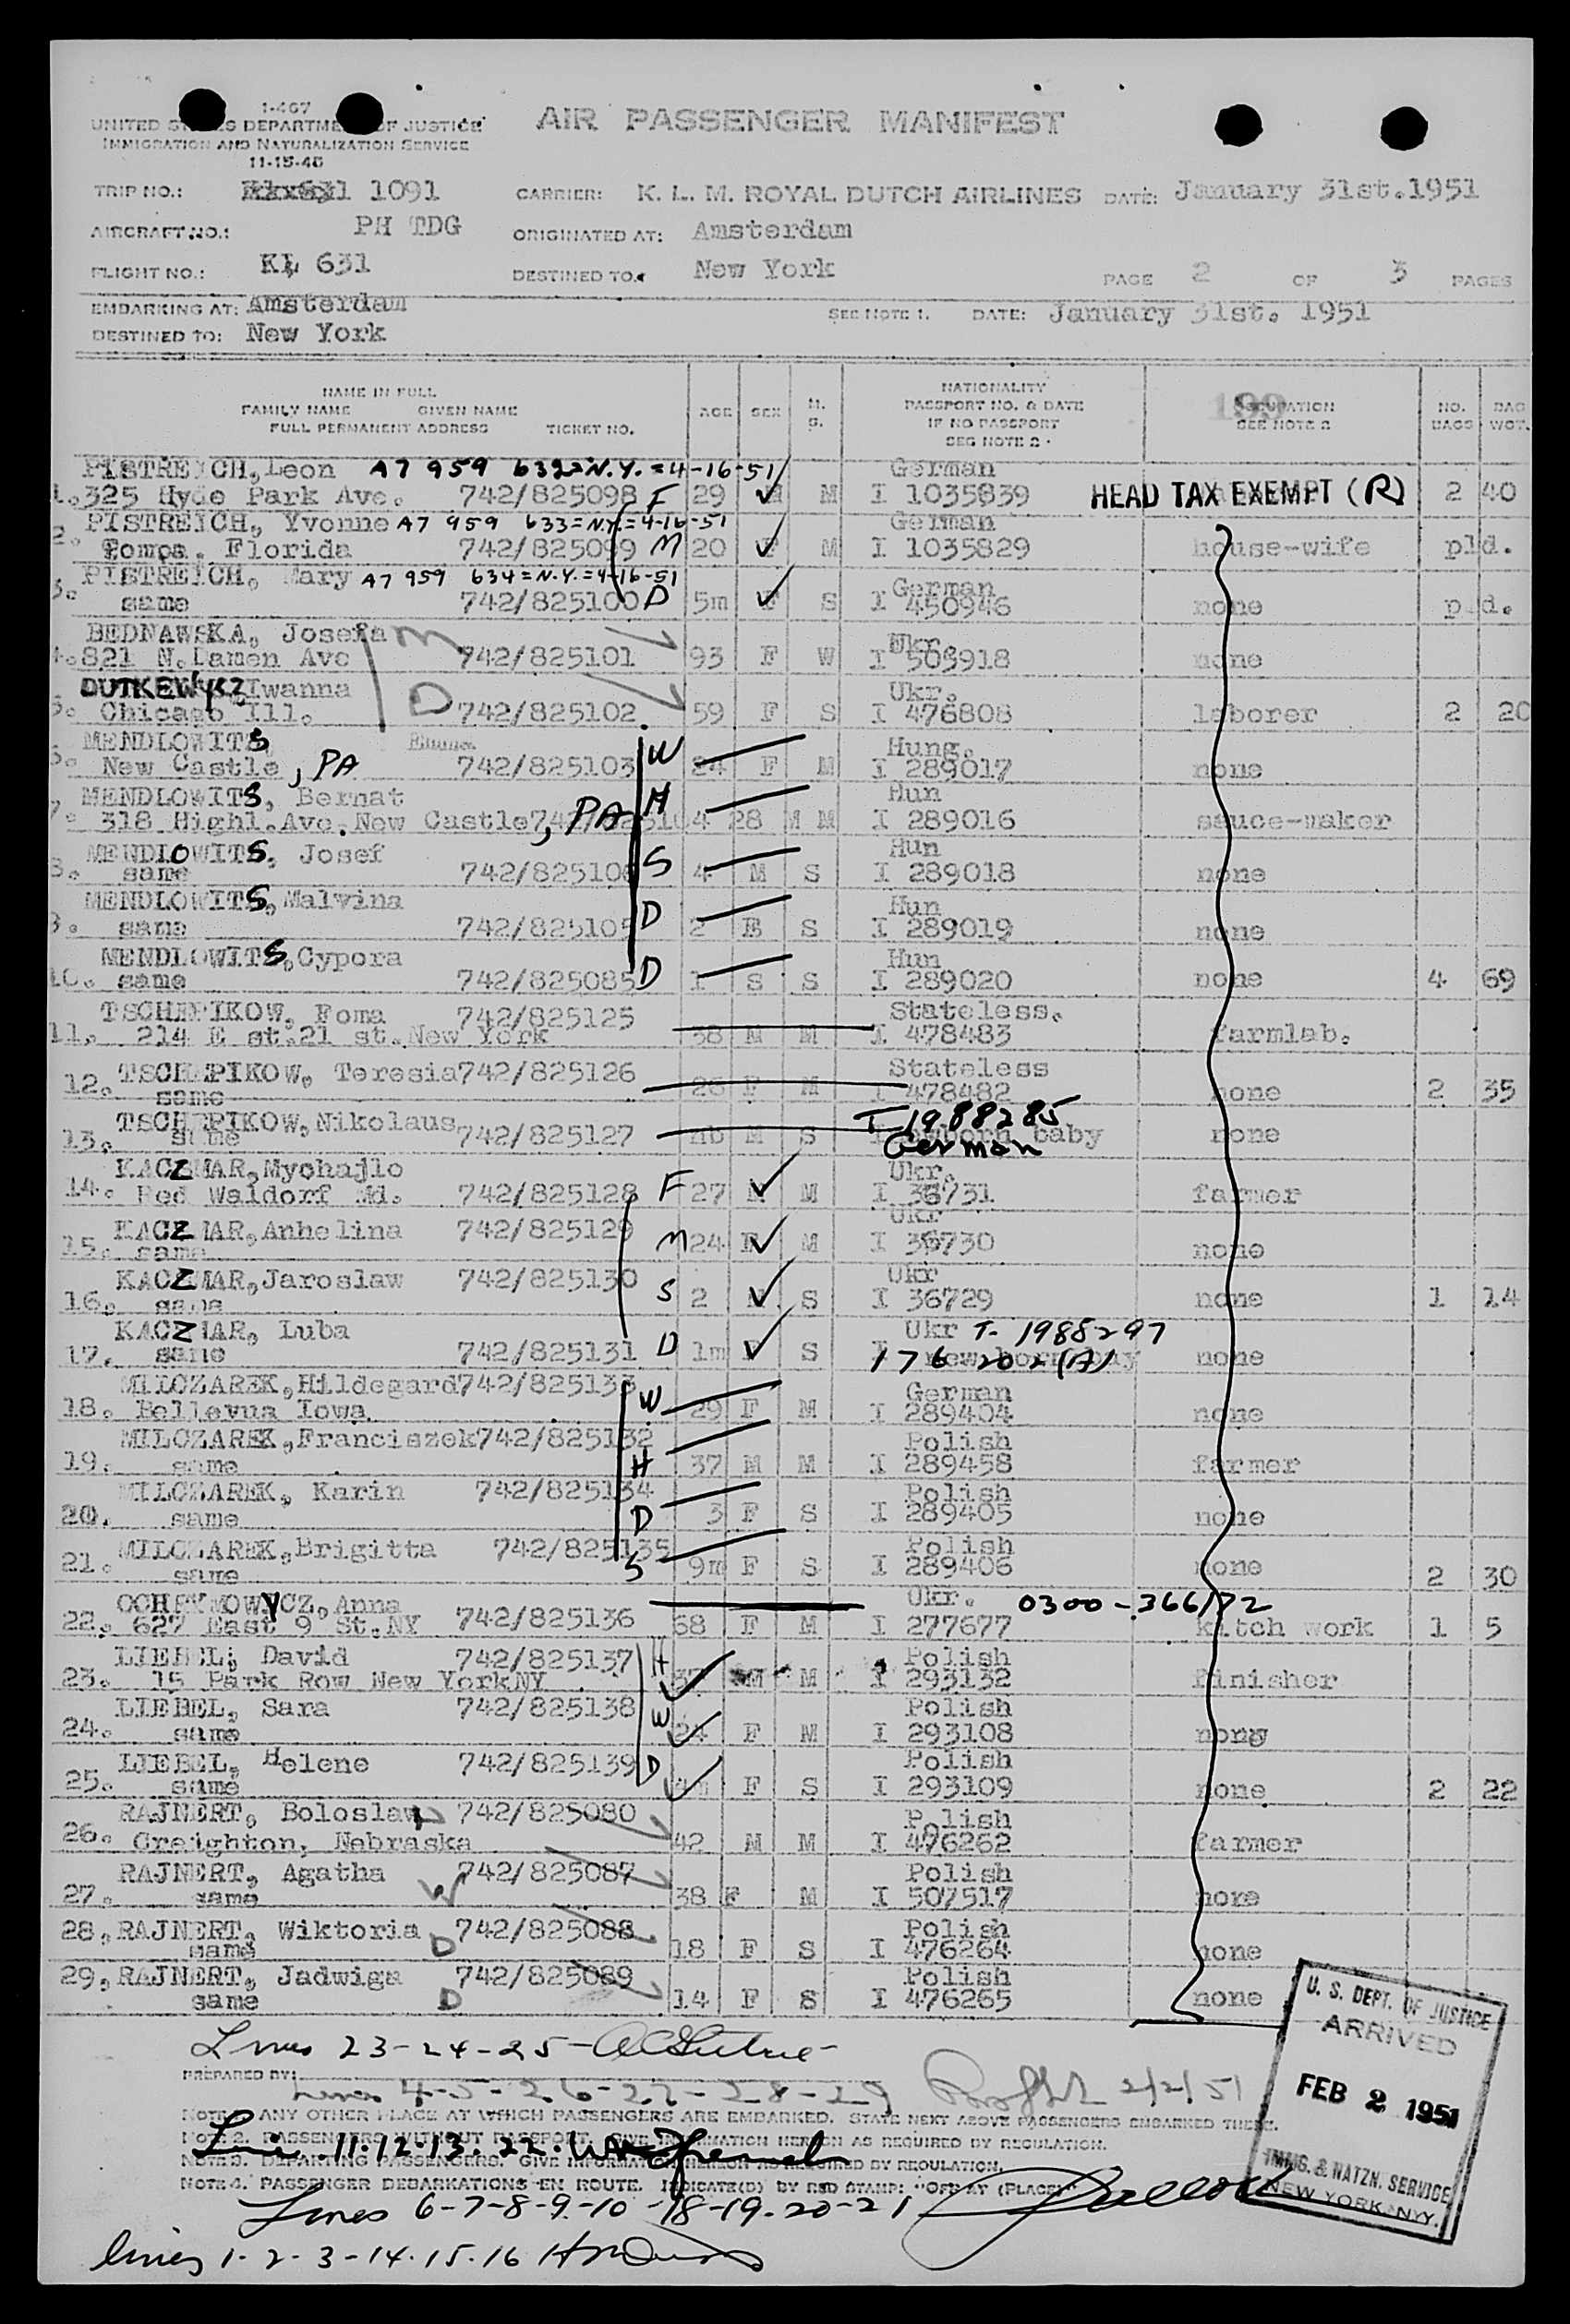 1-467
UNITED STATES DEPARTMENT OF JUSTICE
IMMIGRATION AND NATURALIZATION SERVICE
11-15-46
AIR PASSENGER MANIFEST
TRIP NO.: 1091 CARRIER: K. L. M. ROYAL DUTCH AIRLINES DATE: January 31st.1951
AIRCRAFT NO.: PH TDG ORIGINATED AT: Amsterdam
FLIGHT NO.: KL 631 DESTINED TO. New York PAGE 2 OF 3 PAGES
EMBARKING AT: Amsterdam SEE NOTE 1. DATE: January 31st. 1951
DESTINED TO: New York
NAME IN FULL
FAMILY NAME GIVEN NAME
FULL PERMANENT ADDRESS TICKET NO. AGE SEX M. S. NATIONALITY PASSPORT NO. & DATE IF NO PASSPORT SEE NOTE 2 OCCUPATION SEE NOTE 2 NO. BAGS BAG WGT.
199
PISTREICH, Leon A7 959 632=N.Y.=4-16-51 German
1. 325 Hyde Park Ave. 742/825098 F 29 M I 1035839 HEAD TAX EXEMPT (R) 2 40
PISTREICH, Yvonne A7 959 633=N.Y.=4-16-51 German
2. Tompa. Florida 742/825099 M 20 F M I 1035829 house-wife pld.
PISTREICH, Mary A7 959 634=N.Y.=4-16-51 German
3. same 742/825100 D 5m F S I 450946 none p.d.
BEDNAWSKA, Josefa M Ukr.
4. 821 N. Damen Ave 742/825101 93 F W I 503918 none
DUTKEWycz, Iwanna D Ukr.
5. Chicago Ill. 742/825102 59 F S I 476808 laborer 2 20
MENDLOWITS, Emma W Hung.
New Castle, PA 742/825103 24 F M I 289017 none
MENDLOWITS, Bernat H Hun
7. 318 Highl.Ave.New Castle, PA 28 M M I 289016 sauce-maker
MENDLOWITS, Josef S Hun
8. same 742/825106 4 M S I 289018 none
MENDLOWITS, Malvina D Hun
same 742/825105 2 S I 289019 none
MENDLOWITS, Cypora Hun
10. same 742/825085 D 1 S S I 289020 none 4 69
TSCHEPIKOW, Foma 742/825125 Stateless.
11. 214 E st.21 st.New York 38 M M I 478483 farmlab.
12. TSCHEPIKOW, Teresia 742/825126 Stateless
same 26 F M I 478482 none 2 35
TSCHEPIKOW, Nikolaus T-1988285
13. same 742/825127 nb M S newborn baby German none
KACZMAR, Mychajlo Ukr.
14. Red Waldorf Md. 742/825128 F 27 M M I 36731 farmer
KACZMAR, Anhelina 742/825129 Ukr
15. same M 24 F M I 36730 none
KACZMAR, Jaroslaw 742/825130 Ukr
16. same S 2 M S I 36729 none 1 14
KACZMAR, Luba Ukr T-1988297
17. same 742/825131 D 1m F S 176 202(A) newborn baby none
MILCZAREK, Hildegard 742/825133 W German
18. Bellevua Iowa 29 F M I 289404 none
MILCZAREK, Franciszek 742/825132 Polish
19. same H 37 M M I 289458 farmer
MILCZAREK, Karin 742/825134 Polish
20. same D 3 F S I 289405 none
MILCZAREK, Brigitta 742/825135 Polish
21. same S 9m F S I 289406 none 2 30
OCHRYMOWYCZ, Anna Ukr. 0300-366172
22. 627 East 9 St.NY 742/825136 68 F M I 277677 kitch work 1 5
LIEBEL, David 742/825137 H Polish
23. 15 Park Row New YorkNY 37 M M I 293132 finisher
LIEBEL, Sara 742/825138 W Polish
24. same 24 F M I 293108 none
LIEBEL, Helene 742/825139 D Polish
25. same F S I 293109 none 2 22
RAJNERT, Boloslaw 742/825080 Polish
26. Creighton, Nebraska 42 M M I 476262 farmer
RAJNERT, Agatha 742/825087 Polish
27. same W 38 F M I 507517 none
28, RAJNERT, Wiktoria 742/825088 Polish
same D 18 F S I 476264 none
29, RAJNERT, Jadwiga 742/825089 Polish
same D 14 F S I 476265 none
Lines 23-24-25-
PREPARED BY:
Lines 4-5-26-27-28-29 2/2/51
NOTE 1. ANY OTHER PLACE AT WHICH PASSENGERS ARE EMBARKED. STATE NEXT ABOVE PASSENGERS EMBARKED THERE.
NOTE 2. PASSENGERS WITHOUT PASSPORT. GIVE INFORMATION HEREON AS REQUIRED BY REGULATION.
Line 11.12.13.22.
NOTE 3. DEPARTING PASSENGERS. GIVE INFORMATION HEREON AS REQUIRED BY REGULATION.
NOTE 4. PASSENGER DEBARKATIONS EN ROUTE. INDICATE(D) BY RED STAMP: "OFF AT (PLACE)"
Lines 6-7-8-9-10-18-19-20-21
lines 1-2-3-14.15.16
U. S. DEPT. OF JUSTICE
ARRIVED
FEB 2 1951
IMMIG. & NATZN. SERVICE
NEW YORK, N.Y.